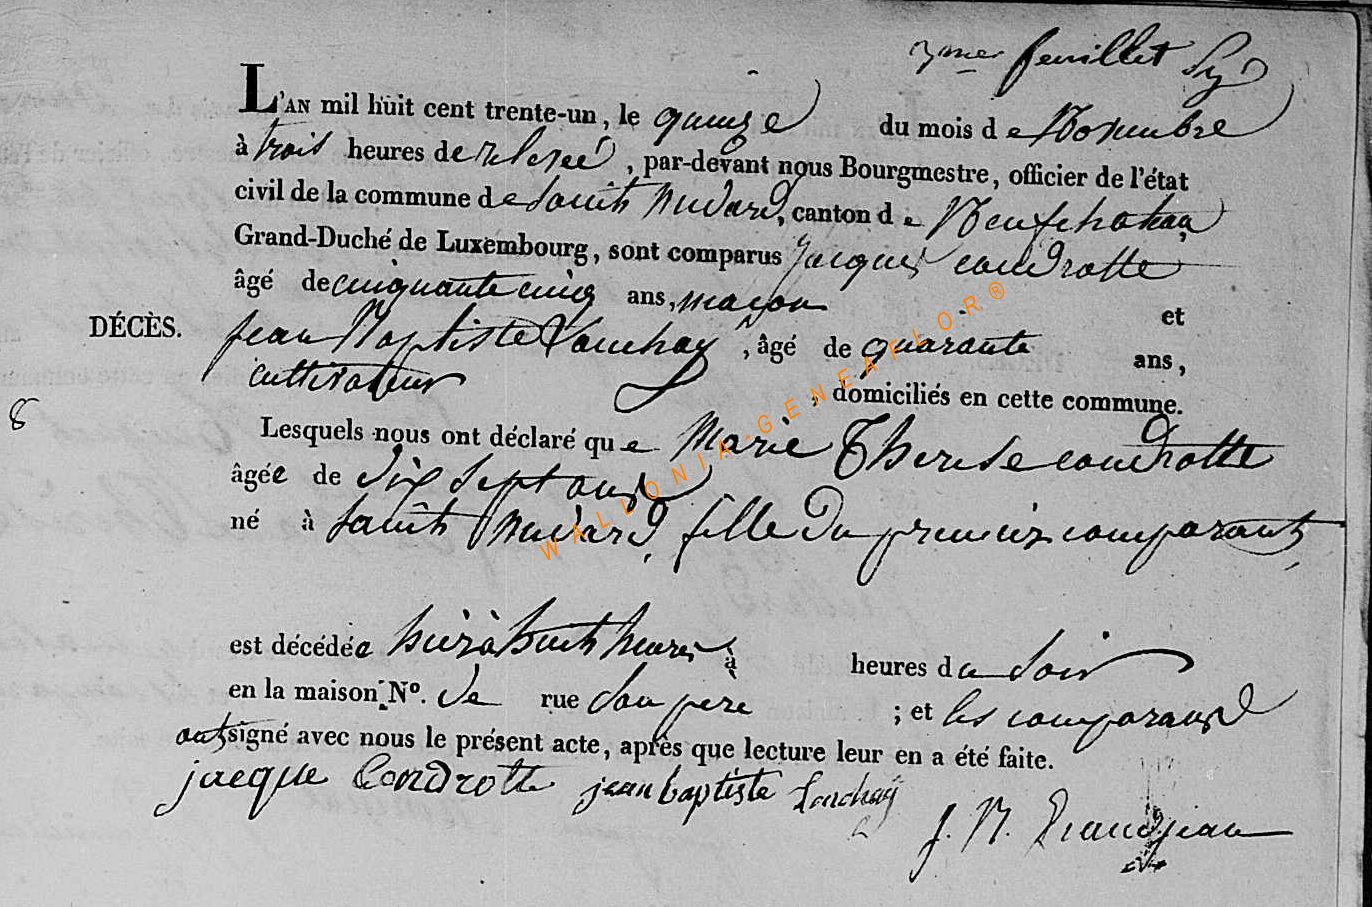 3me feuillet
L'AN mil huit cent trente-un, le quinze du mois de Novembre
à trois heures de relevé, par-devant nous Bourgmestre, officier de l'état
civil de la commune de Saint Médard, canton de Neufchateau
Grand-Duché de Luxembourg, sont comparus Jacques condrotte
âgé de cinquante cinq ans, maçon et
DÉCÈS.
Jean Baptiste Louchay, âgé de quarante ans,
cultivateur, domiciliés en cette commune.
8
Lesquels nous ont déclaré que Marie Therese condrotte
âgée de dix sept ans
né à Saint Médard, fille du premier comparant,
est décédée hier à huit heures à heures du soir
en la maison N°. de rue son père ; et les comparans
ont signé avec nous le présent acte, après que lecture leur en a été faite.
jacque Condrotte jean baptiste Louchay
J. N. Grandjean
WALLONIA-GENEAFLOR®